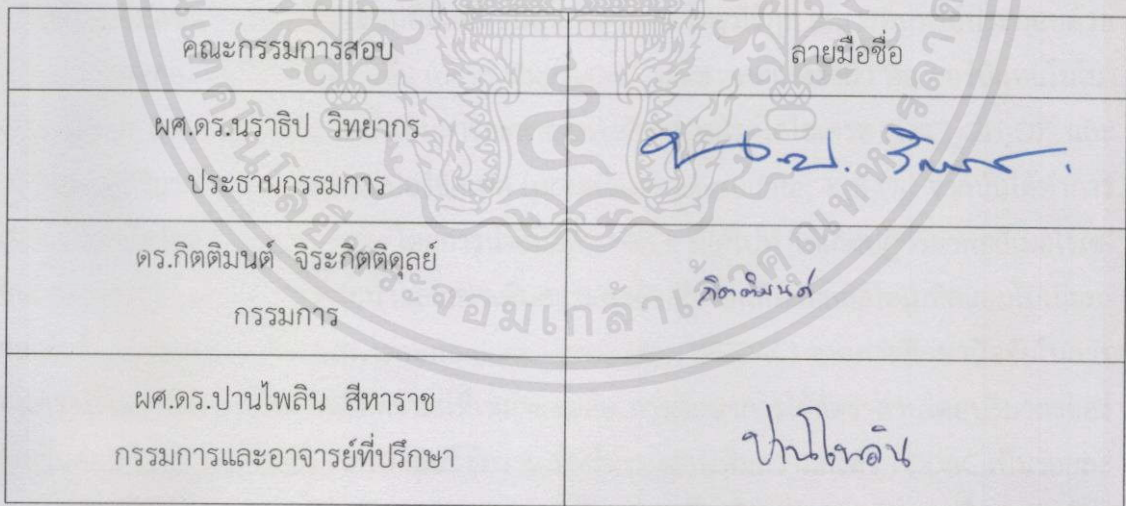 คณะกรรมการสอบ ลายมือชื่อ
ผศ.ดร.นราธิป วิทยากร
ประธานกรรมการ
ดร.กิตติมนต์ จิระกิตติดุลย์
กรรมการ
กิตติมนต์
ผศ.ดร.ปานไพลิน สีหาราช
กรรมการและอาจารย์ที่ปรึกษา
ปานไพลิน
พระจอมเกล้าเจ้าคุณทหารลาด